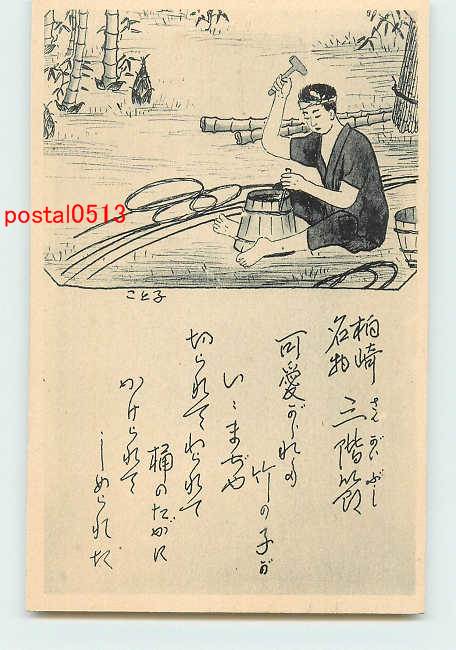 postal0513
こと子
柏崎
名物
三階節
さんがいぶし
可愛がられた
竹の子が
いゝまぢや
切られてわられて
桶のたがに
かけられて
しめられた